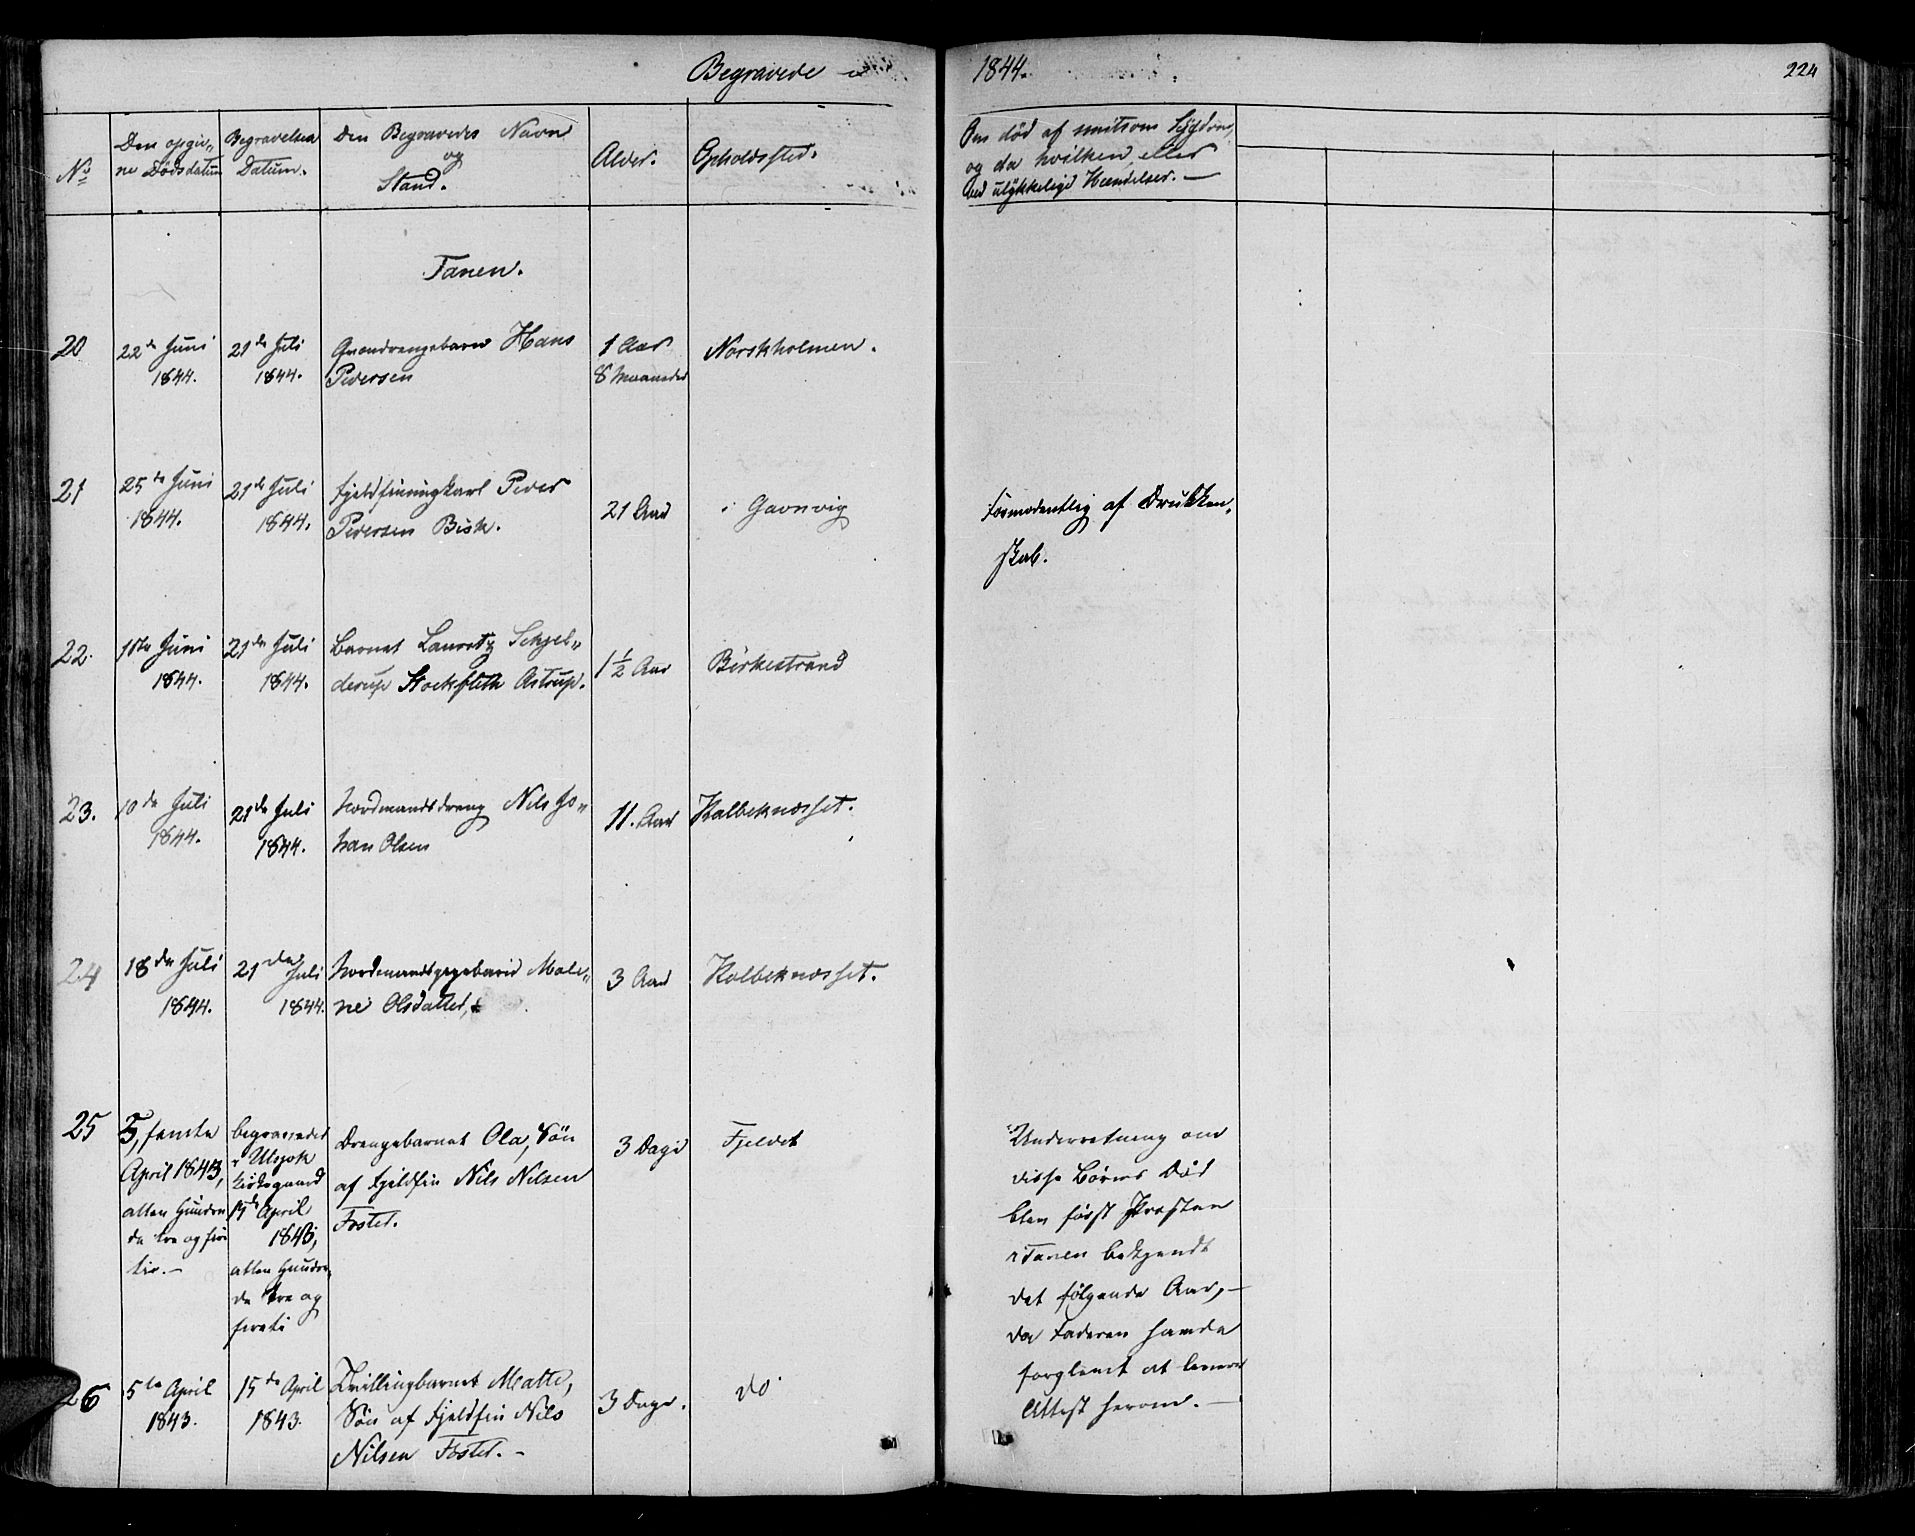 Begravede
1844.
224
No
Den opgiv-
ne Dødsdatum
Begravelses
Datum.
Den Begravedes Navn
og
Stand.
Alder.
Opholdssted.
Om død af smitsom Sygdom,
og da hvilken, eller
ved ulykkelige Hændelser. —
Tanen.
20
22de Juni
1844.
21de Juli
1844.
Hans
Pedersen
1 Aar
8 Maaneder
Norskholmen.
21
25de Juni
1844.
21de Juli
1844.
Peder
Pedersen Bisk.
21 Aar
i Gavnvig
Formodentlig af Drukken,
skab.
22.
Juni
1844.
21de Juli
1844.
Barnet Lauretz Schjel-
derup Stockfleth Astrup.
1 1/2 Aar
Birkestrand
23.
10de Juli
1844.
21de Juli
1844.
Nordmandsdreng Nils Jo-
han Olsen
11. Aar
Kolbeknæsset.
24
18de Juli
1844.
21de Juli
1844.
Male-
ne Olsdatter,
3 Aar
Kolbeknæsset.
25
5, femte
April 1843,
atten Hundre
de tre og fir
tie.—
begravedes
i Utsjok
Kirkegaard
April
1843,
atten Hundre,
de tre og
fireti
Drengebarnet Ola, Søn
af Fjeldfin Nils Nilsen
Fosted.
3 Dage
Fjeldet
Underretning om
disse Børns Død
blev først Præsten
i Tanen bekjendt
det følgende Aar, —
da Faderen havde
forglemt at levere
Attest herom. —
26
5te April
1843.
15de April
1843.
Tvillingbarnet Matte,
Søn af Fjeldfin Nils
Nilsen Fosted. —
3 Dage.
do